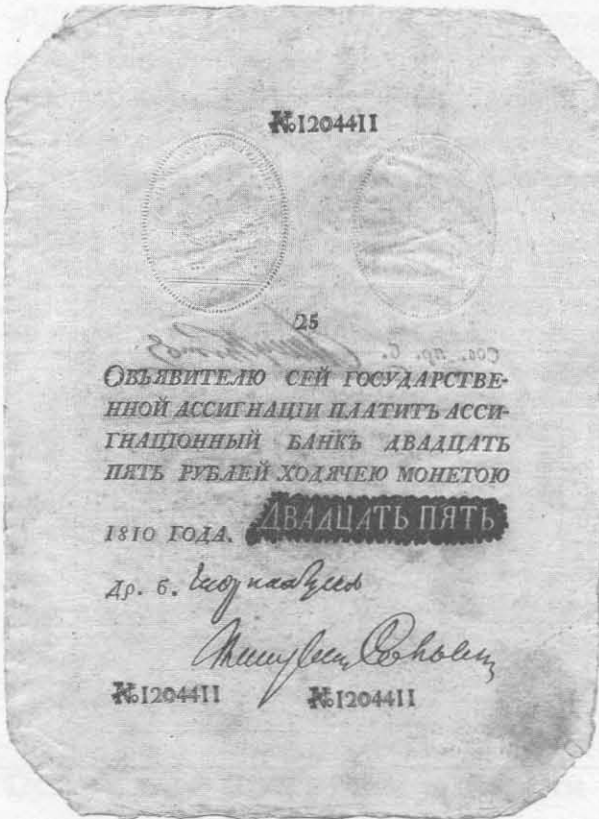 №1204411
25
ОБЪЯВИТЕЛЮ СЕЙ ГОСУДАРСТВЕ-
ННОЙ АССИГНАЦІИ ПЛАТИТЪ АССИ-
ГНАЦІОННЫЙ БАНКЪ ДВАДЦАТЬ
ПЯТЬ РУБЛЕЙ ХОДЯЧЕЮ МОНЕТОЮ
1810 ГОДА. ДВАДЦАТЬ ПЯТЬ
Др. б.
№1204411 №1204411